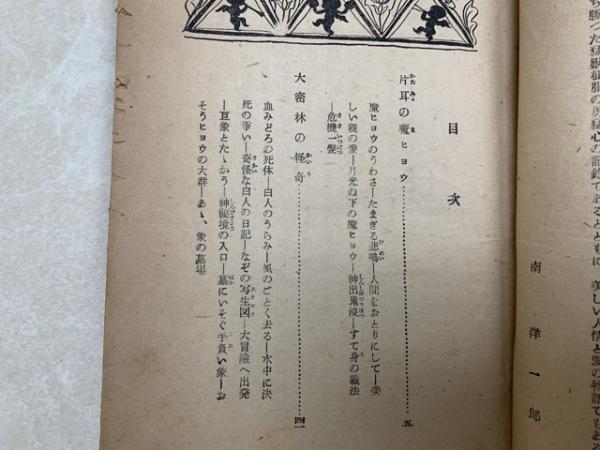 ち勝つた猛獣征服の勇猛心の記録であるとともに、美しい人情と愛の物語でもある
南洋一郎
目次
片耳の魔ヒョウ……五
魔ヒョウのうわさ―たまぎる悲鳴―人間をおとりにして―美
しい親の愛―月光の下の魔ヒョウ―神出鬼没―すて身の戦法
―危機一髪―
大密林の怪奇……四一
血みどろの死体―白人のうらみ―風のごとく去る―水中に決
死の争い―奇怪な白人の日記―なぞの写生図―大冒険へ出発
―巨象とたゝかう―神秘境の入口―墓にいそぐ手負い象―お
そうヒョウの大群―あゝ、象の墓場